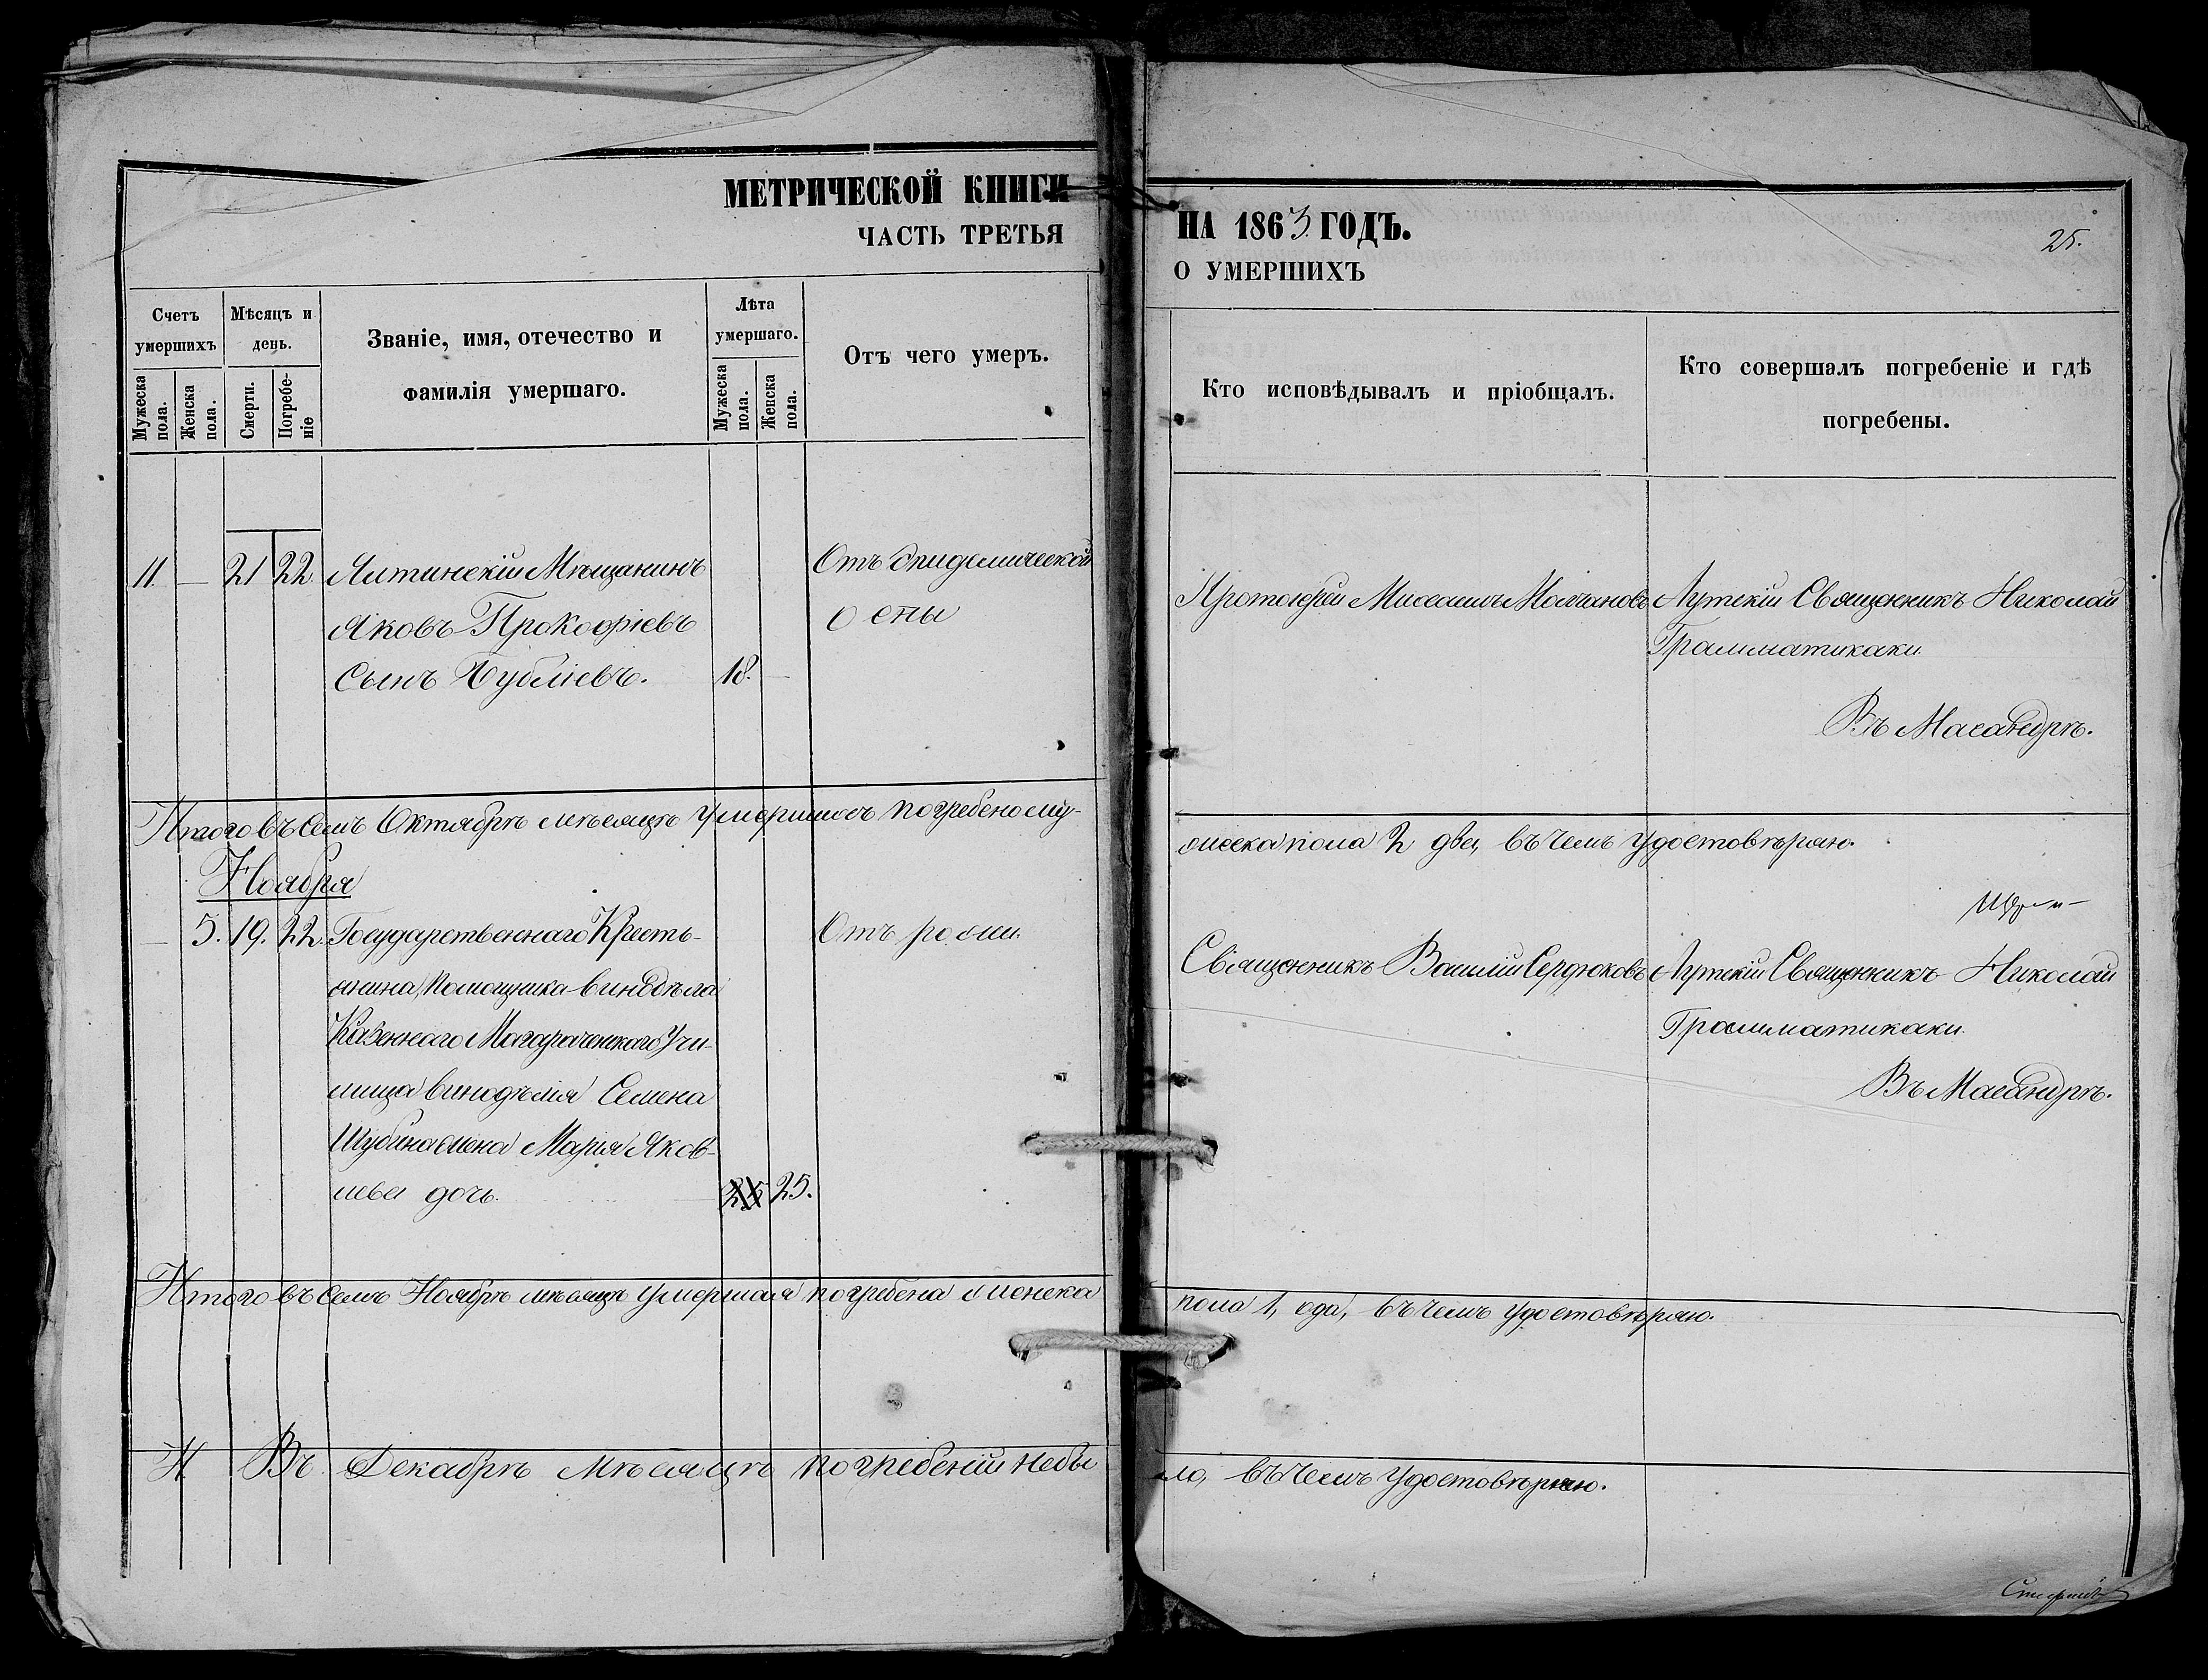 МЕТРИЧЕСКОЙ КНИГИ
ЧАСТЬ ТРЕТЬЯ
Счетъ умершихъ
Мужеска пола.
Женска пола.
Мѣсяцъ и день.
Смерти.
Погребе-
ніе
Званіе, имя, отечество и
фамилія умершаго.
Лѣта
умершаго.
Мужеска пола.
Женска пола.
Отъ чего умеръ.
11. — 21 22. Ялтинскій Мѣщанинъ
Яковъ Прокофіевъ
Сынъ Бубліевъ. 18. —
Отъ эпидемической
оспы
Итого въ семъ Октябрѣ мѣсяцѣ умершихъ погребено му-
Ноября
— 5. 19. 22. Государственнаго Кресть-
янина, помощника винодѣла
Казеннаго Магарачскаго Учи-
лища винодѣлія Семена
Шубина жена Марія Яков-
лева дочь. 25.
Отъ рожи.
Итого въ семъ Ноябрѣ мѣсяцѣ умершая погребена женска
И. Въ Декабрѣ мѣсяцѣ погребеній небы
НА 1863 ГОДЪ.
О УМЕРШИХЪ
25.
Кто исповѣдывалъ и пріобщалъ.
Кто совершалъ погребеніе и гдѣ
погребены.
Протоіерей Мисаилъ Молчановъ
Аутскій Священникъ Николай
Грамматикаки.
Въ Масандрѣ.
жеска пола 2 два, въ чемъ удостовѣряю.
Священникъ Василій Сердюковъ
Аутскій Священникъ Николай
Грамматикаки.
Въ Масандрѣ.
пола 1, одна, въ чемъ удостовѣряю.
ло, въ чемъ удостовѣряю.